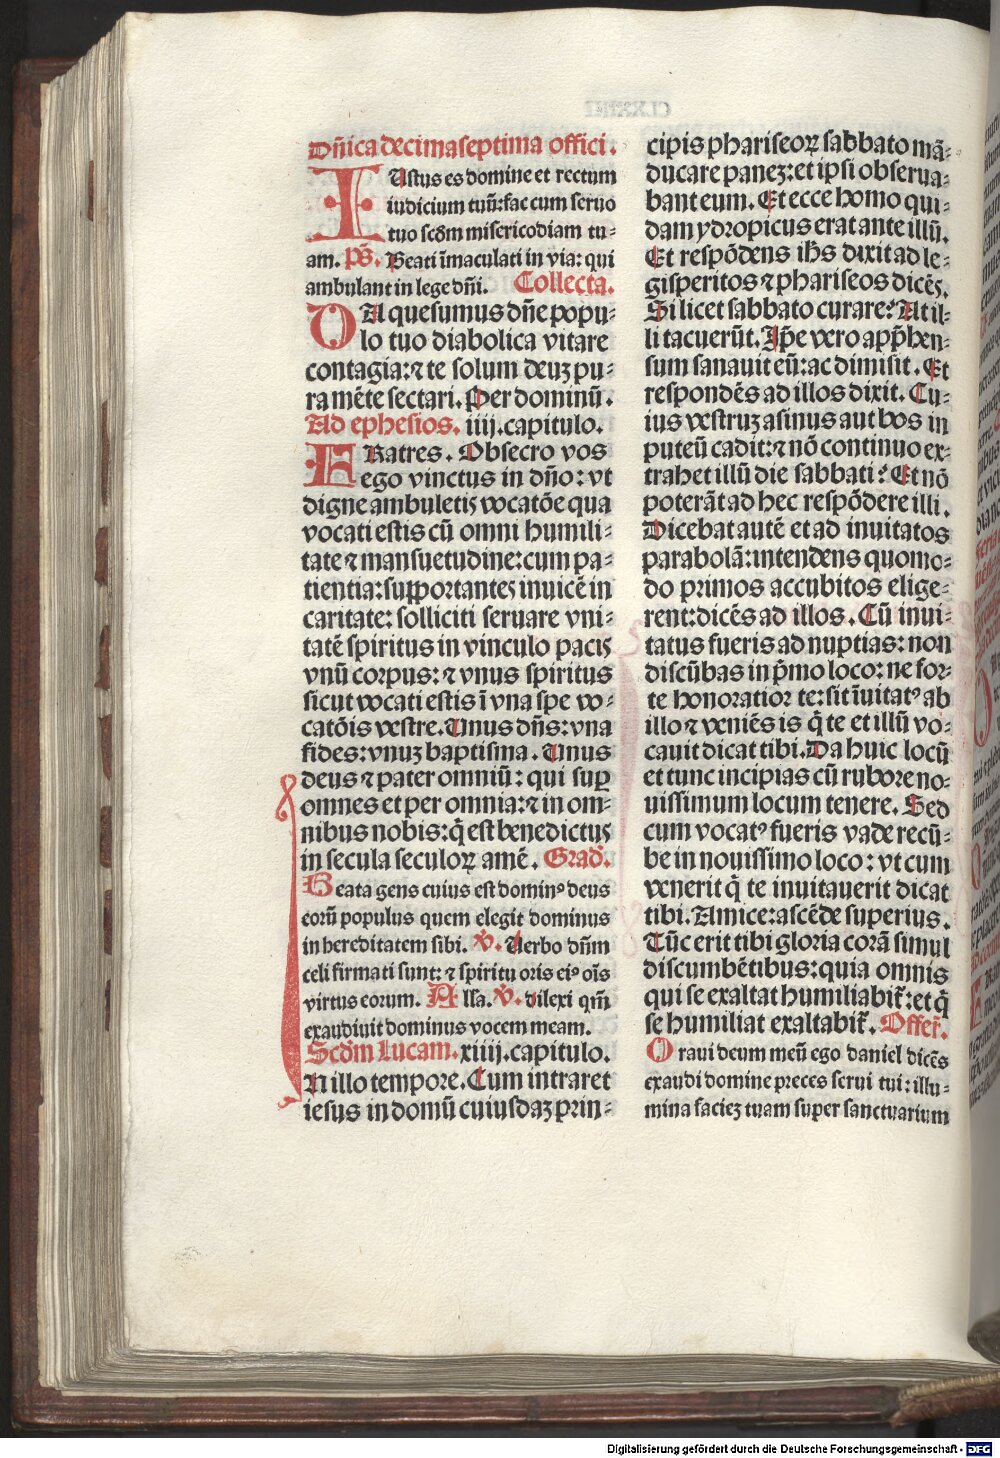 Dn̄ica decimaseptima offici.
IUstus es domine et rectum
iudicium tuū: fac cum seruo
tuo scd̄m misericodiam tu-
am. pˢ. Beati īmaculati in via: qui
ambulant in lege dn̄i. Collecta.
DA quesumus dn̄e popu-
lo tuo diabolica vitare
contagia: ⁊ te solum deuꝫ pu-
ra mēte sectari. Per dominū.
Ad ephesios. iiij. capitulo.
FRatres. Obsecro vos
ego vinctus in dn̄o: vt
digne ambuletis vocatōe qua
vocati estis cū omni humili-
tate ⁊ mansuetudine: cum pa-
tientia: supportantes inuicē in
caritate: solliciti seruare vni-
tatē spiritus in vinculo pacis
vnū corpus: ⁊ vnus spiritus
sicut vocati estis ī vna spe vo-
catōis vestre. Unus dn̄s: vna
fides: vnuꝫ baptisma. Unus
deus ⁊ pater omniū: qui suꝑ
omnes et per omnia: ⁊ in om-
nibus nobis: q̄ est benedictus
in secula seculoꝝ amē. Grad̄.
Beata gens cuius est dominꝰ deus
eorū populus quem elegit dominus
in hereditatem sibi. ꝟ. Uerbo dn̄m
celi firmati sunt: ⁊ spiritu oris eiꝰ oīs
virtus eorum. Alla. ꝟ. dilexi qm̄
exaudiuit dominus vocem meam.
Scd̄m Lucam. xiiij. capitulo.
IN illo tempore. Cum intraret
iesus in domū cuiusdaꝫ prin-
cipis phariseoꝝ sabbato mā-
ducare paneꝫ: et ipsi obserua-
bant eum. Et ecce homo qui-
dam ydropicus erat ante illū.
Et respōdens ih̄s dixit ad le-
gisperitos ⁊ phariseos dicēs.
Si licet sabbato curare? At il-
li tacuerūt. Ip̄e vero app̄hen-
sum sanauit eū: ac dimisit. Et
respondēs ad illos dixit. Cu-
ius vestruꝫ asinus aut bos in
puteū cadit: ⁊ nō continuo ex-
trahet illū die sabbati? Et nō
poterāt ad hec respōdere illi.
Dicebat autē et ad inuitatos
parabolā: intendens quomo-
do primos accubitos elige-
rent: dicēs ad illos. Cū inui-
tatus fueris ad nuptias: non
discūbas in p̄mo loco: ne for-
te honoratior te: sit īuitatꝰ ab
illo ⁊ veniēs is q̄ te et illū vo-
cauit dicat tibi. Da huic locū
et tunc incipias cū rubore no-
uissimum locum tenere. Sed
cum vocatꝰ fueris vade recū-
be in nouissimo loco: vt cum
venerit q̄ te inuitauerit dicat
tibi. Amice: ascēde superius.
Tūc erit tibi gloria corā simul
discumbētibus: quia omnis
qui se exaltat humiliabit̄: et q̄
se humiliat exaltabit̄. Offer̄.
Oraui deum meū ego daniel dicēs
exaudi domine preces serui tui: illu-
mina facieꝫ tuam super sanctuarium
Digitalisierung gefördert durch die Deutsche Forschungsgemeinschaft - DFG